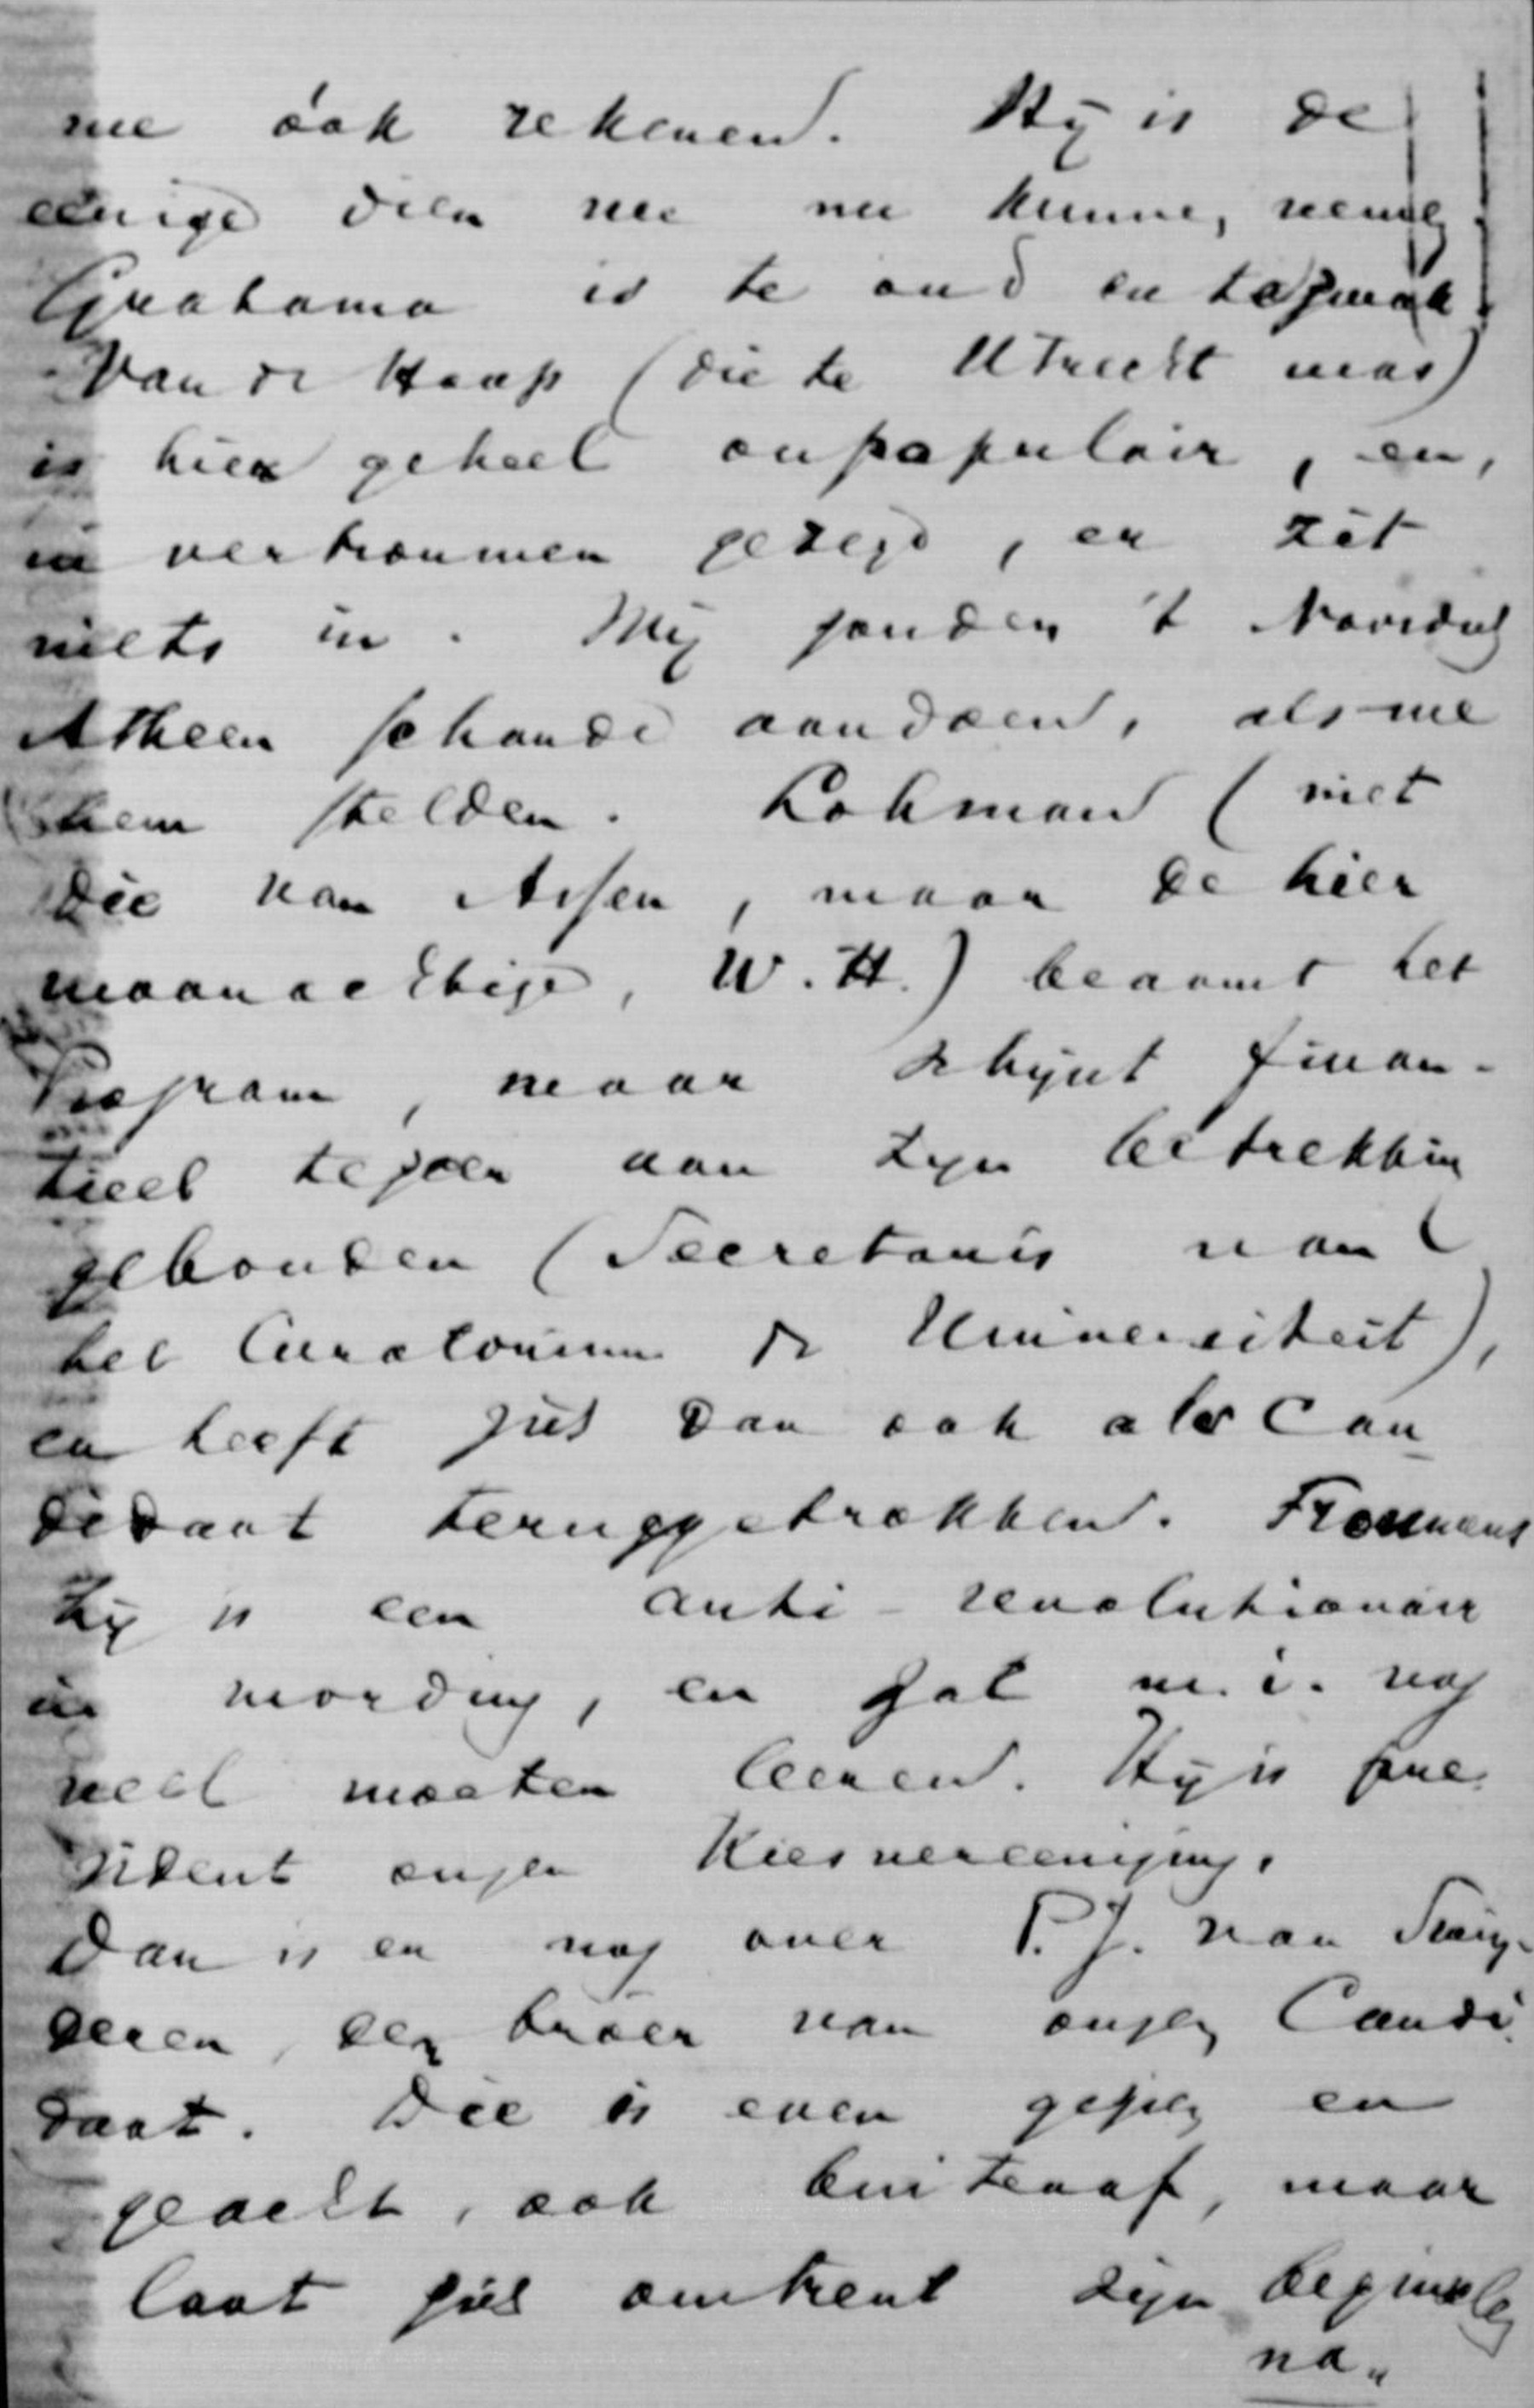 we óók rekenen. Hij is de
eenige dien we nu kunnen nemen
Gratama is te oud en te zwak
Van de Kaap (die te Utrecht was)
is hier geheel onpopulair, en,
in vertrouwen gezegd, er zit
niets in. Wij zouden 't Noordsch
Atheen schande aandoen, als we
hem stelden. Lohman (niet
die van Assen, maar de hier
woonachtige, W. H.) beaamt het
Program, maar schijnt finan-
tieel tezeer aan zijn betrekking
gebonden (Secretaris van
het Curatorium der Universiteit),
en heeft zich dan ook als Can
didaat teruggetrokken.
Hij is een anti-revolutionair
in wording, en zal m. i. nog
veel moeten leeren. Hij is pre
sident onzer Kiesvereeniging.
Dan is er nog over P. J. van Swin-
deren, een broer van onzen Candi
daat. Die is even gezien en
geacht, ook bij den adel, maar
laat zich omtrent zijn beginselen
na.